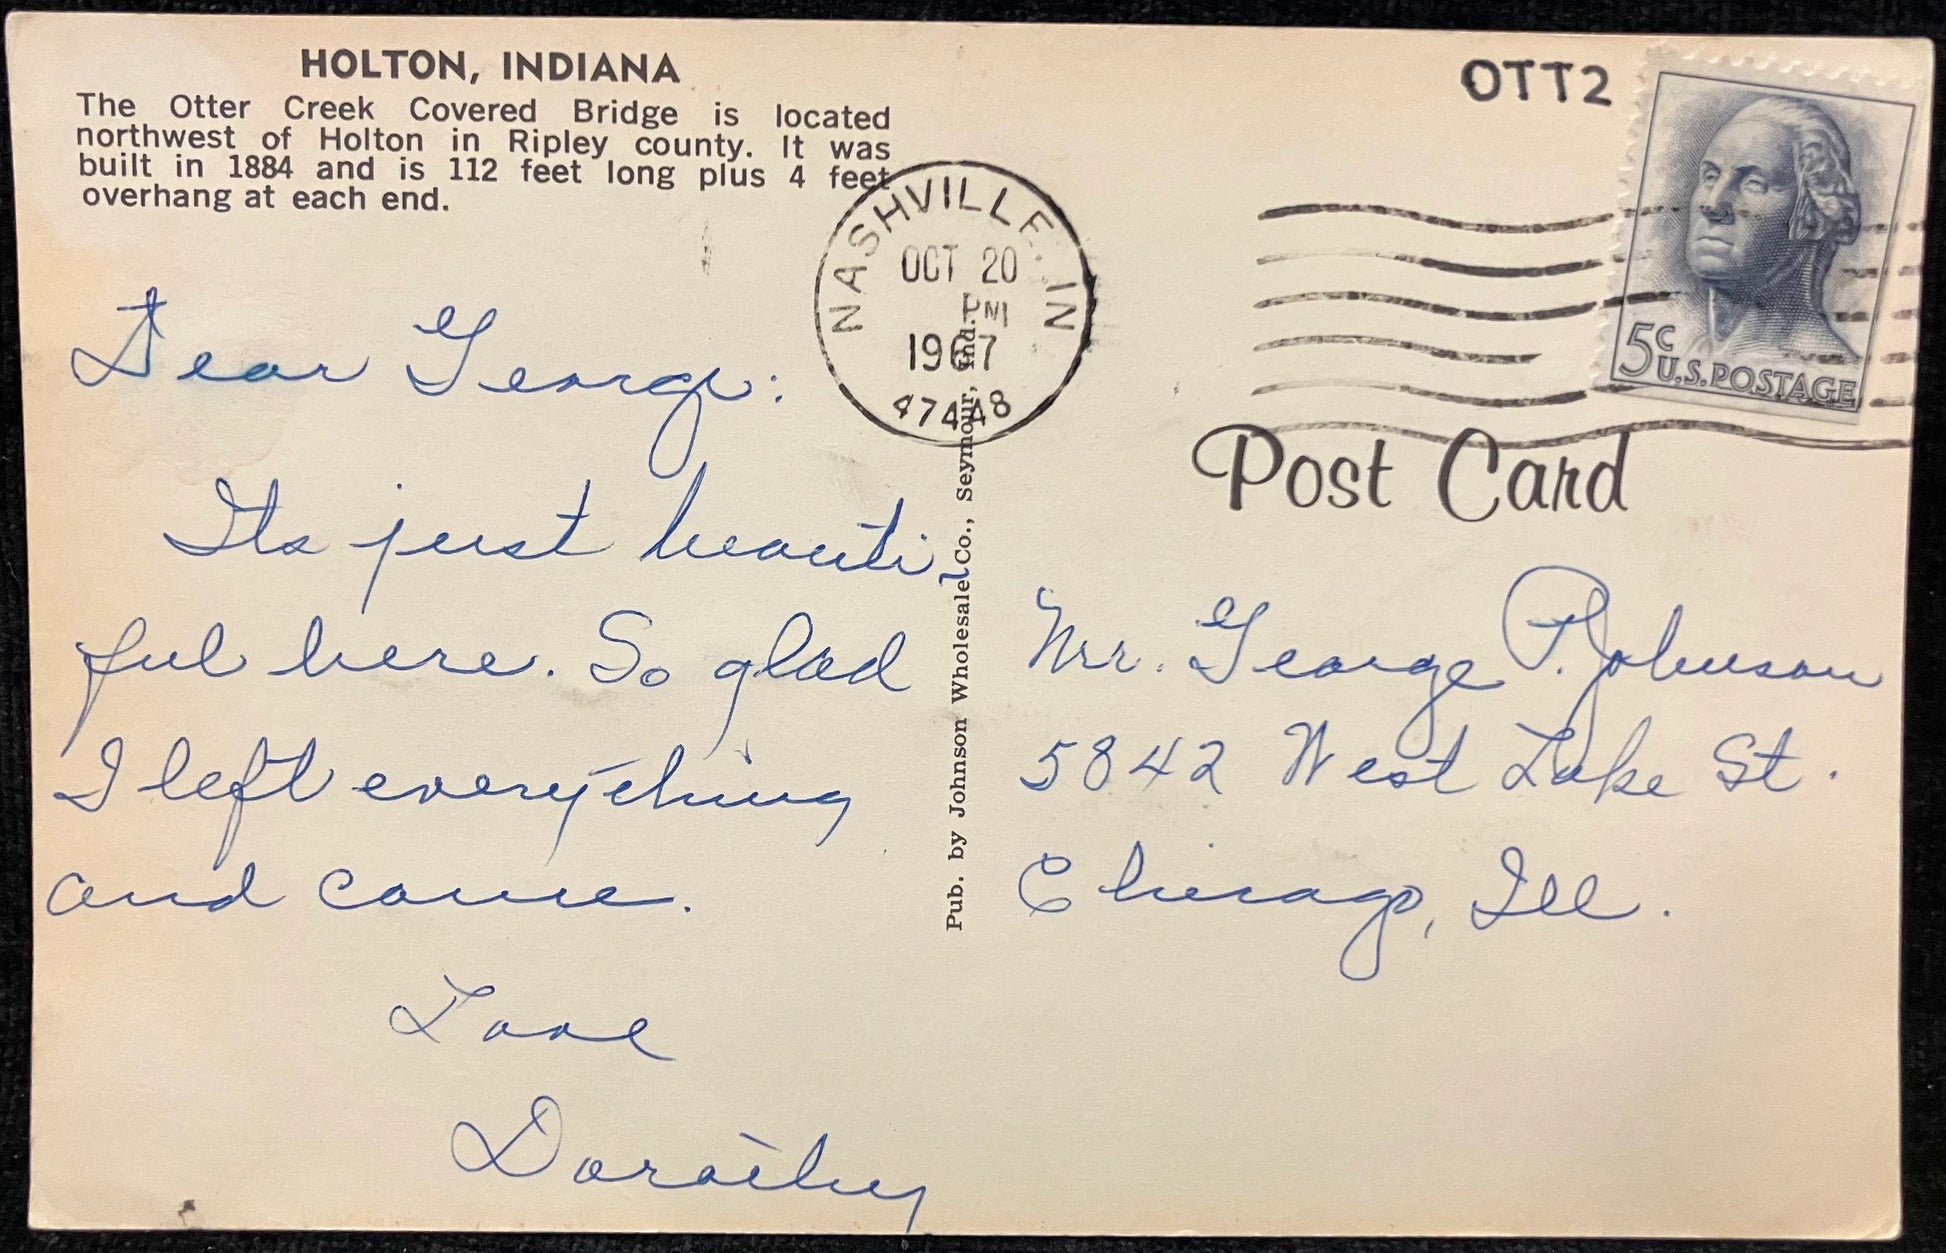 HOLTON, INDIANA
The Otter Creek Covered Bridge is located
northwest of Holton in Ripley county. It was
built in 1884 and is 112 feet long plus 4 feet
overhang at each end.
OTT2
NASHVILLE, IN
OCT 20
PM
1967
47448
5c
U.S. POSTAGE
Post Card
Dear George:
Its just beauti-
ful here. So glad
I left everything
and came.
Love
Dorothy
Pub. by Johnson Wholesale Co., Seymour, Ind.
Mr. George P. Johnson
5842 West Lake St.
Chicago, Ill.